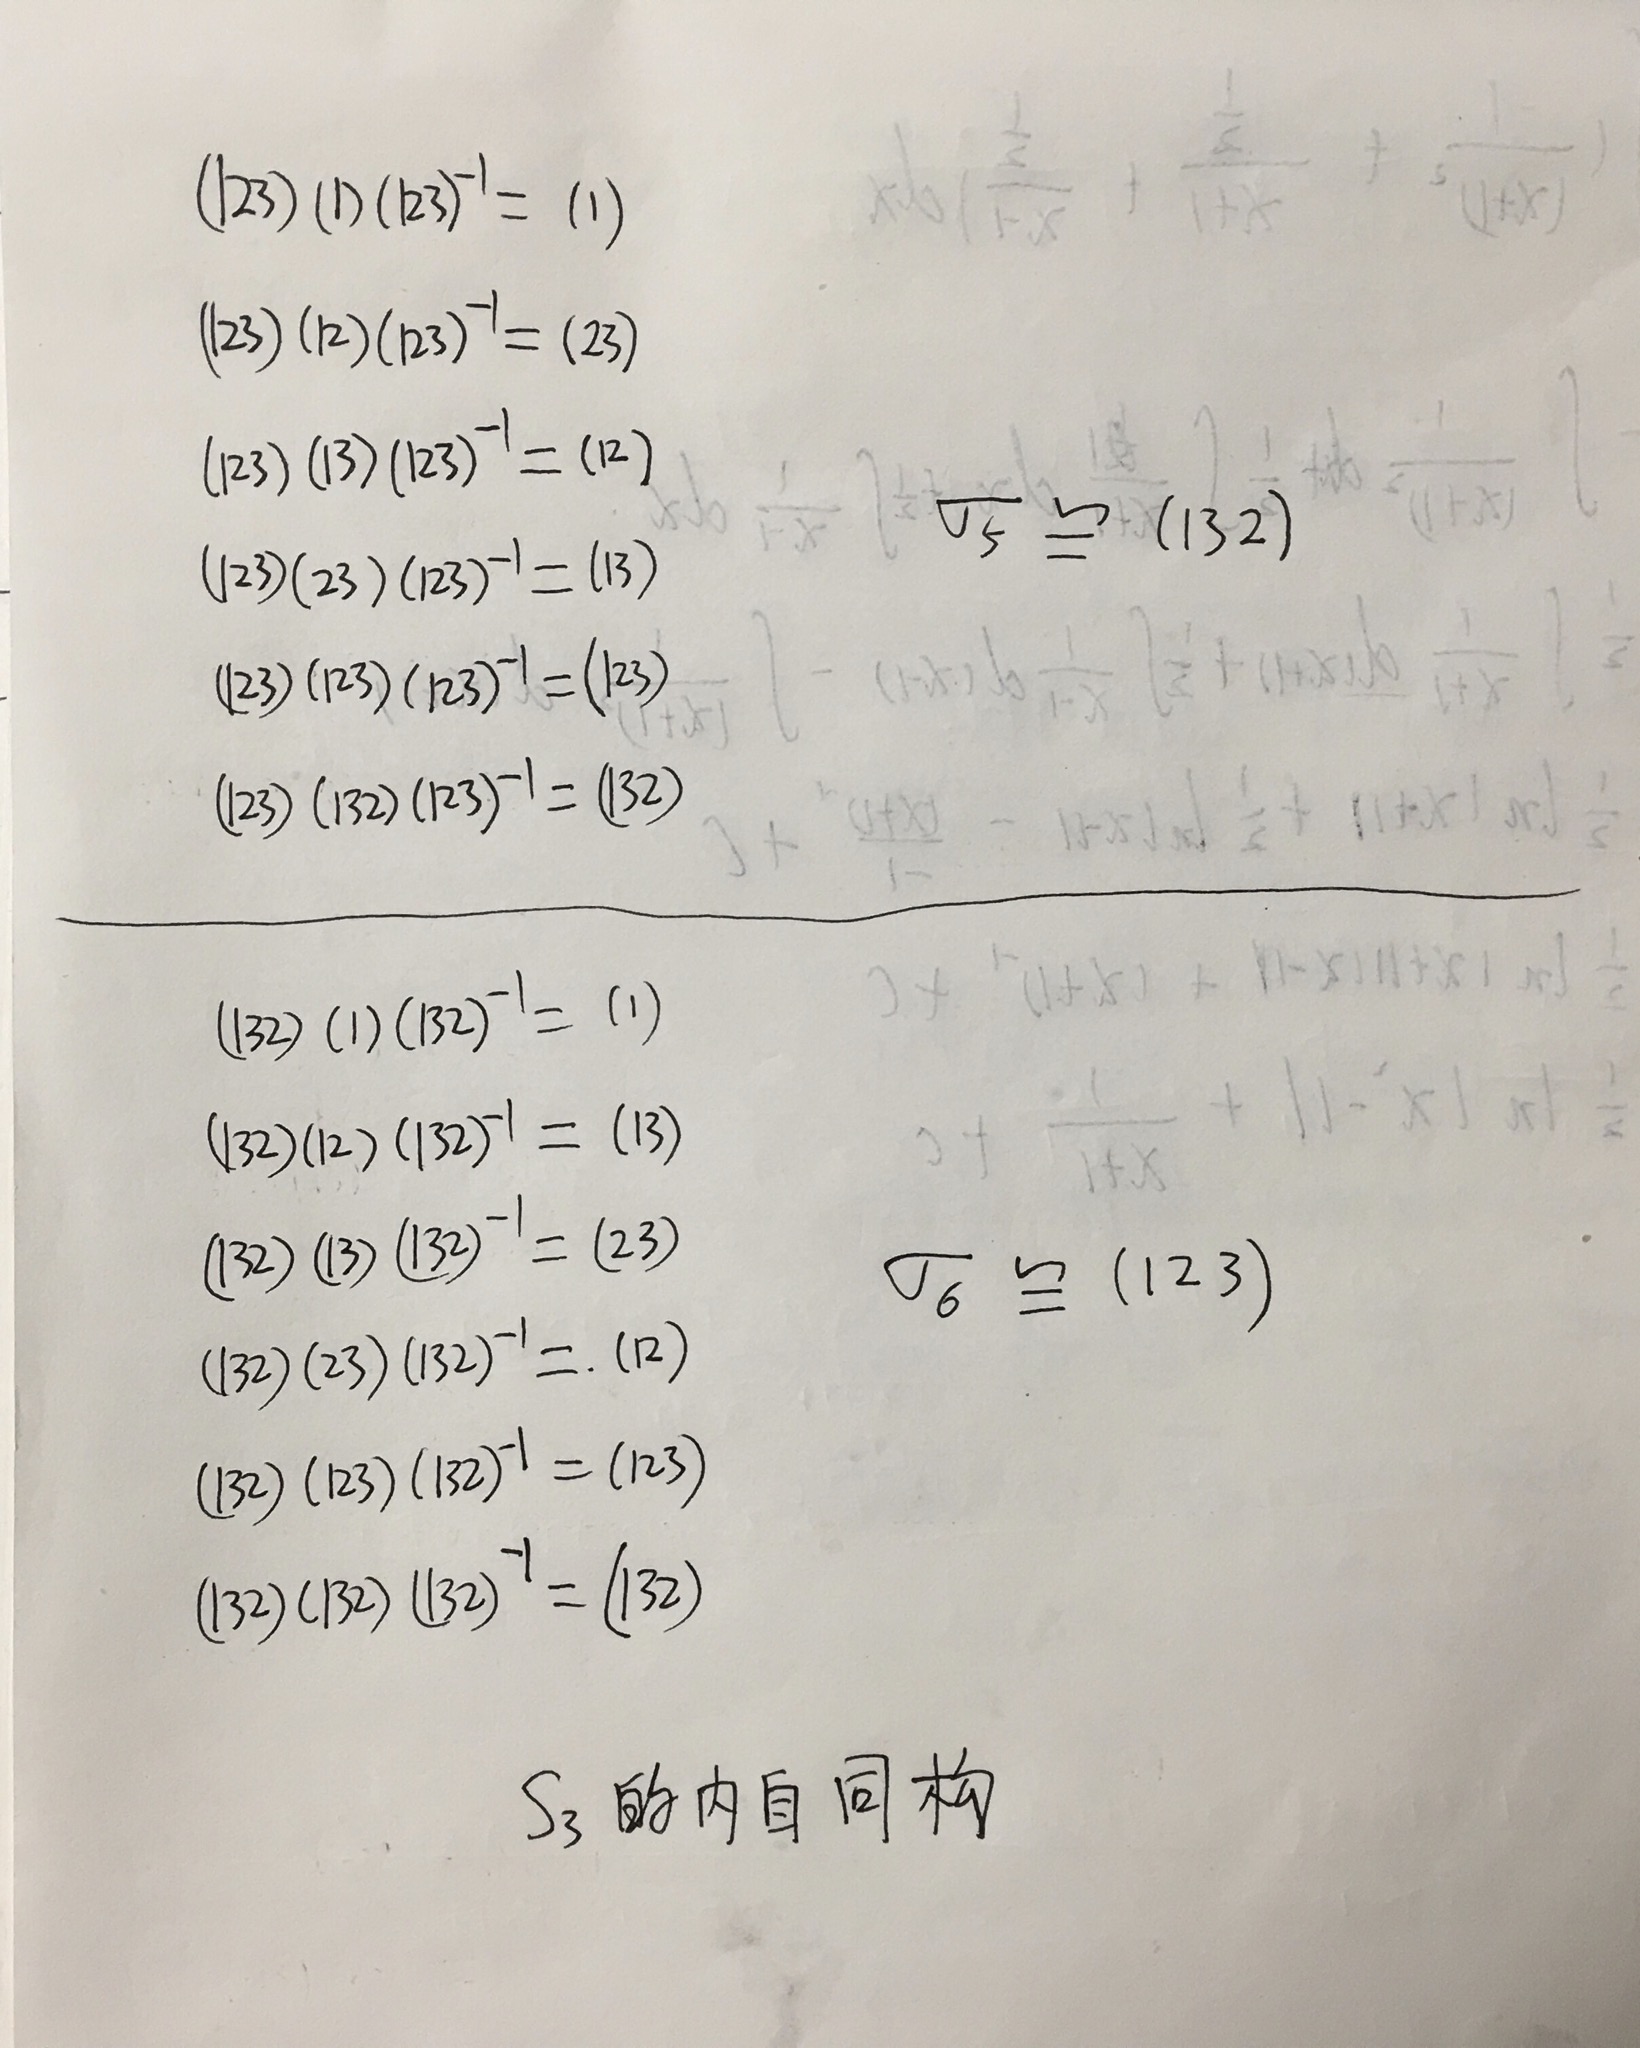 (123)(1)(123)⁻¹ = (1)
(123)(12)(123)⁻¹ = (23)
(123)(13)(123)⁻¹ = (12)
(123)(23)(123)⁻¹ = (13)
(123)(123)(123)⁻¹ = (123)
(123)(132)(123)⁻¹ = (132)
σ₅ ≌ (132)
(132)(1)(132)⁻¹ = (1)
(132)(12)(132)⁻¹ = (13)
(132)(13)(132)⁻¹ = (23)
(132)(23)(132)⁻¹ = (12)
(132)(123)(132)⁻¹ = (123)
(132)(132)(132)⁻¹ = (132)
σ₆ ≌ (123)
S₃的内自同构